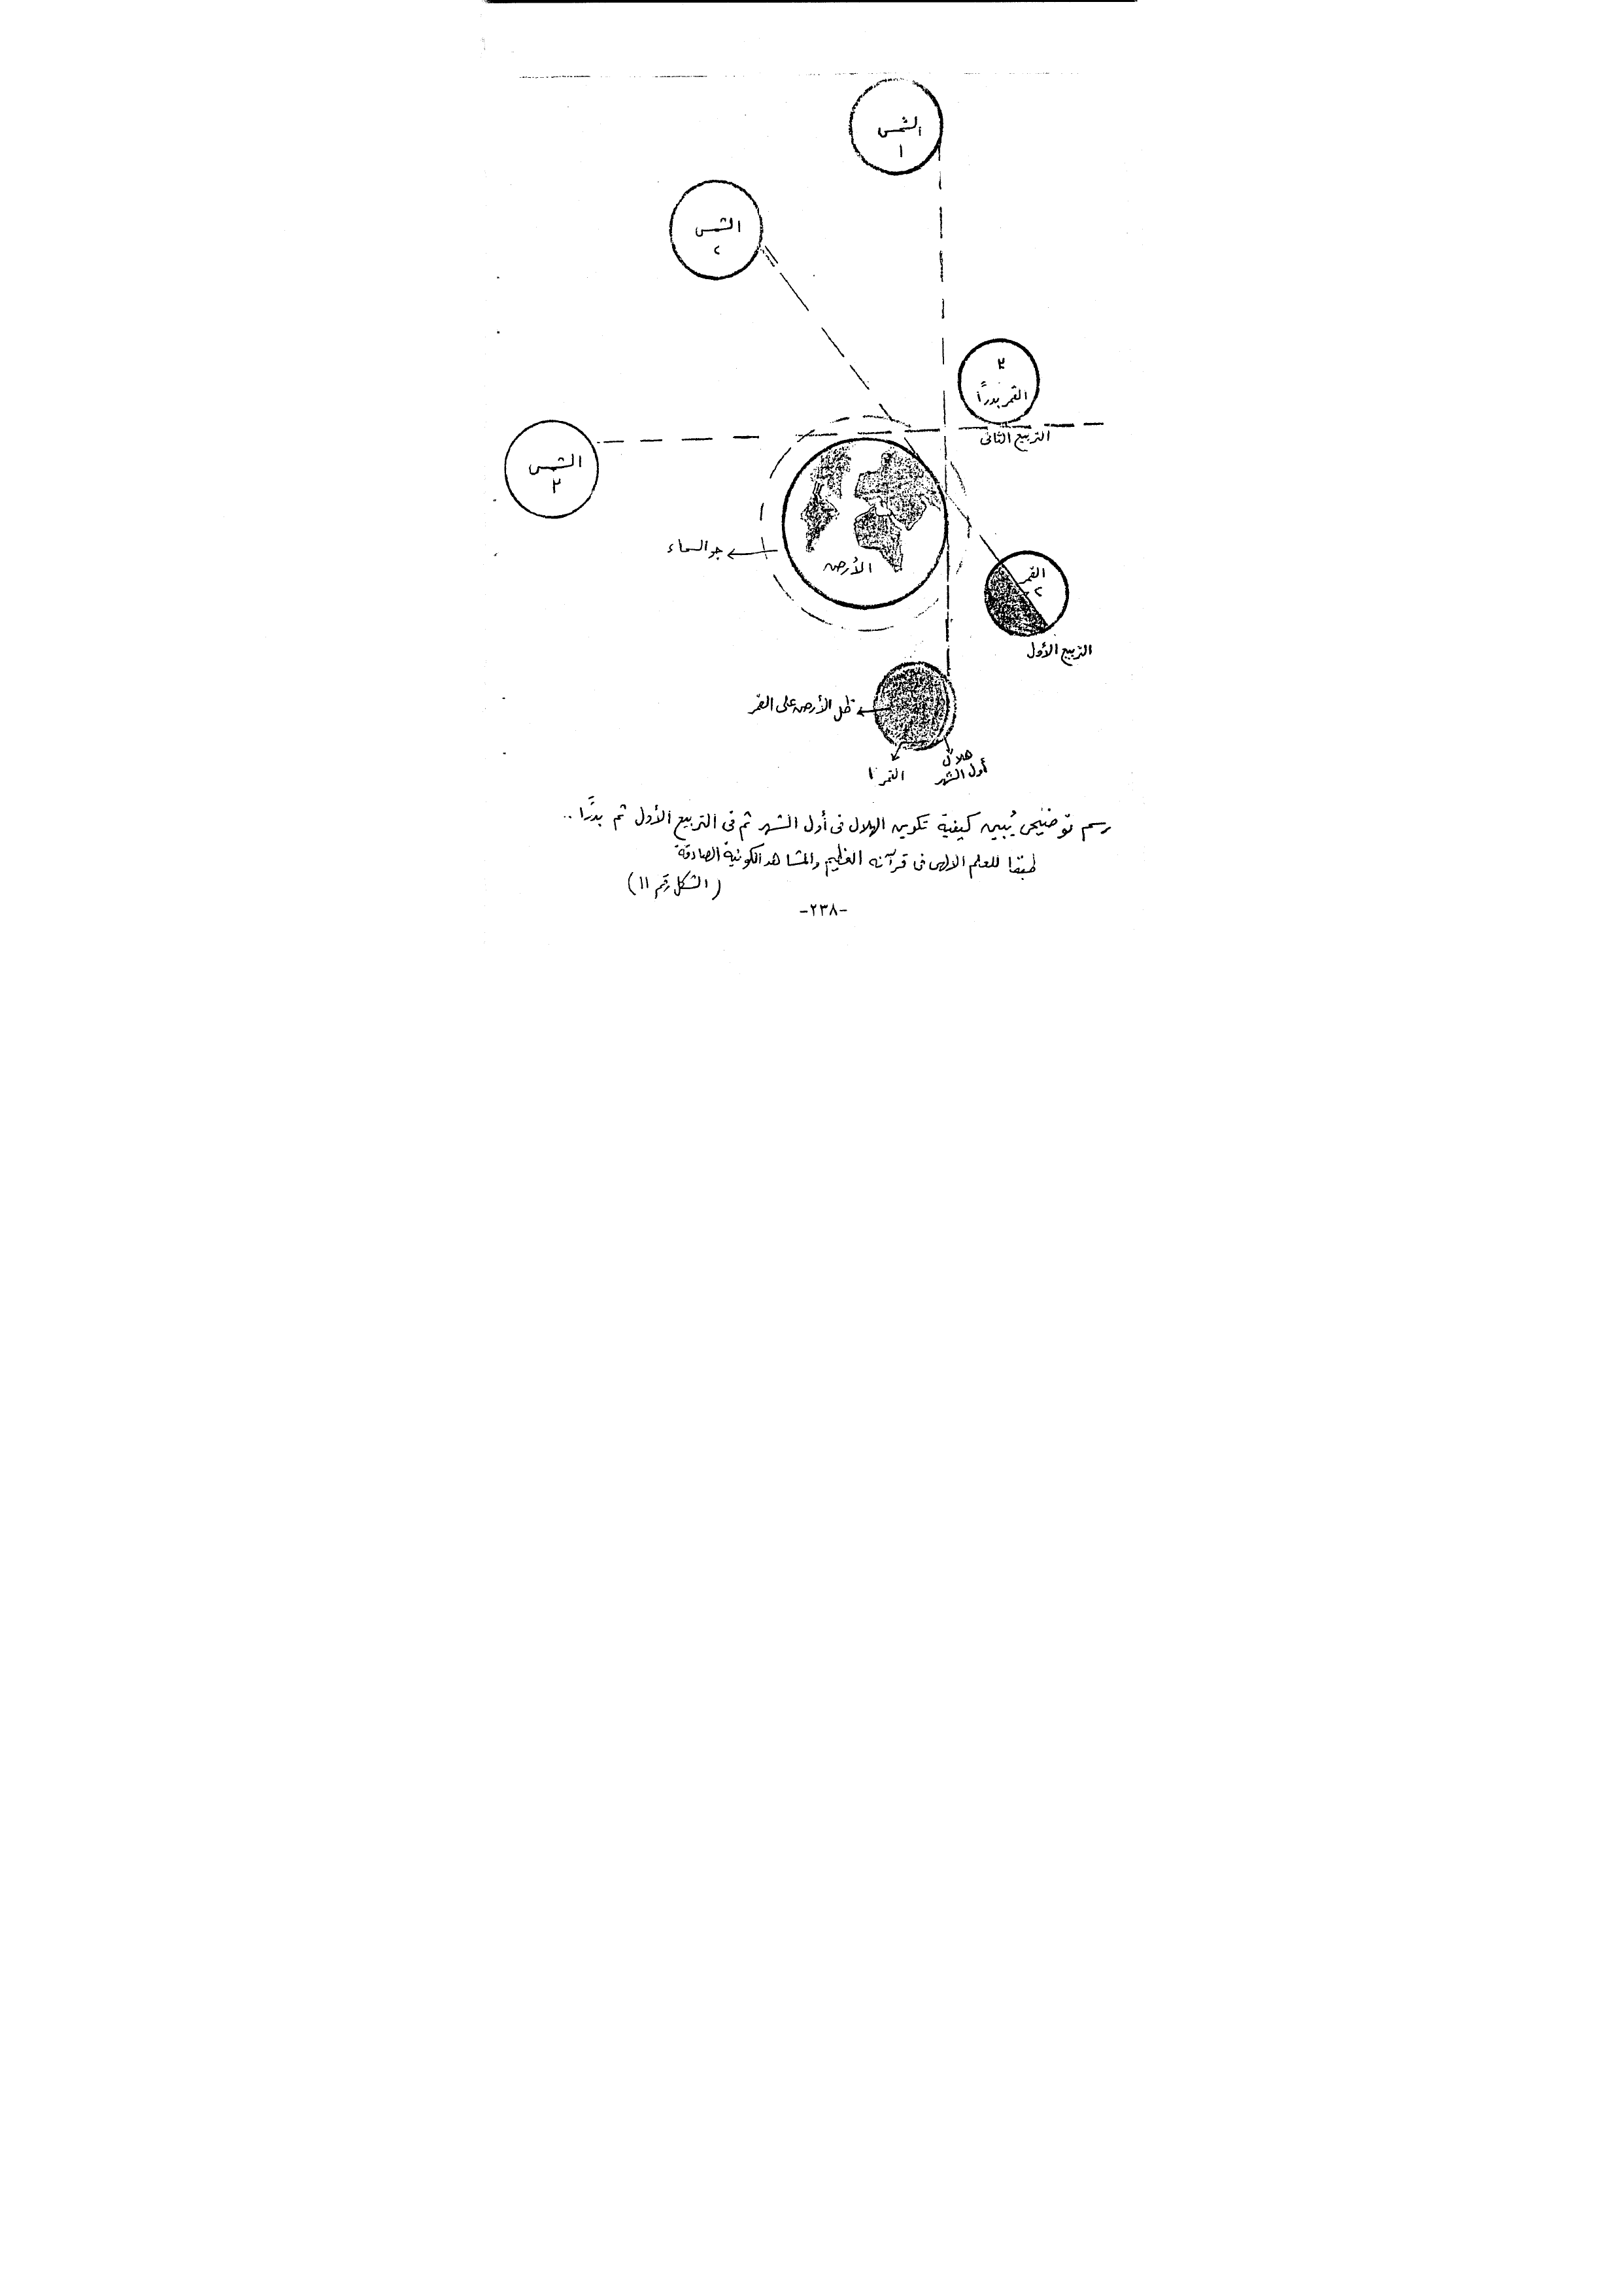 الشمس
١
الشمس
٢
٣
القمر بدراً
التربيع الثانى
الشمس
٣
جو السماء
الأرض
القمر
٢
التربيع الأول
ظل الأرض على القمر
هلال
أول الشهر
القمر ١
رسم توضيحى يُبين كيفية تكوين الهلال فى أول الشهر ثم فى التربيع الأول ثم بدرًا ..
طبقا للعلم الالهى فى قرآنه العظيم والمشاهد الكونية الصادقة
(الشكل رقم ١١)
-٢٣٨-